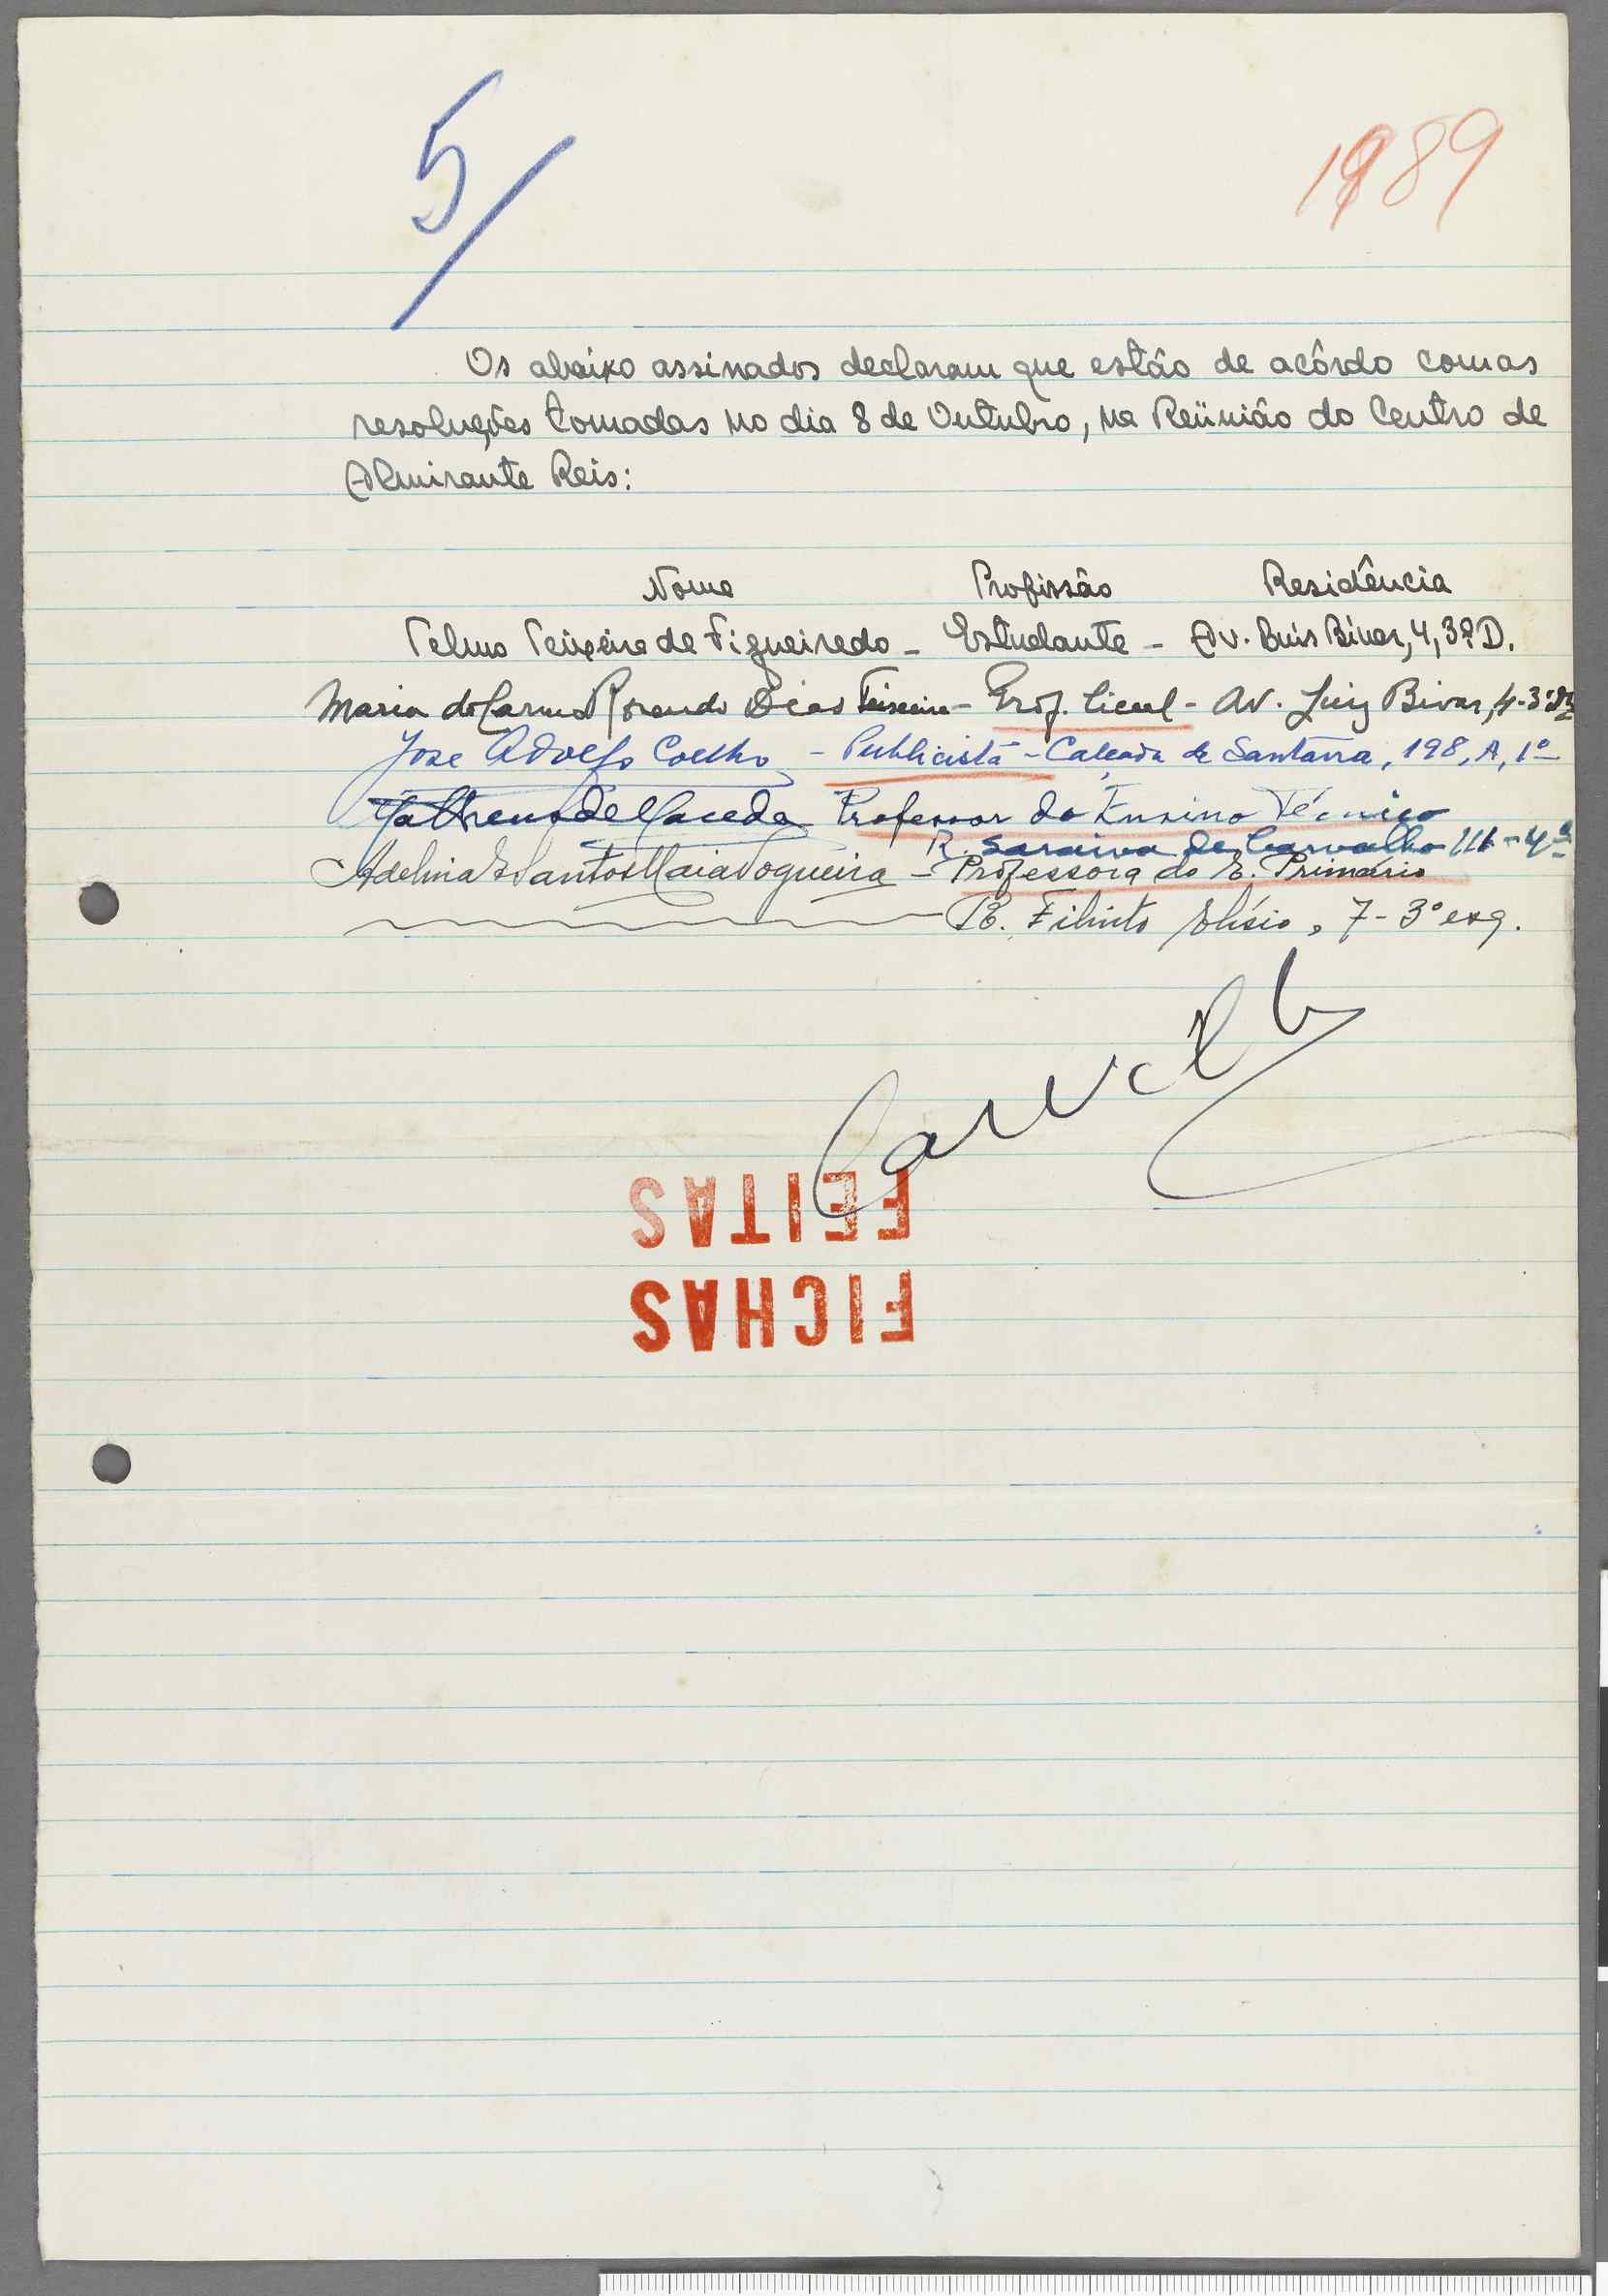 5
1989
Os abaixo assinados declaram que estão de acôrdo com as
resoluções tomadas no dia 8 de Outubro, na Reünião do Centro de
Almirante Reis:
Nome Profissão Residência
Telmo Teixeira de Figueiredo - Estudante - Av. Luis Bivar, 4, 3º D.
Maria do Carmo Dias Teixeira - Prof. Liceal - Av. Luiz Bivar, 4-3º
José Adolfo Coelho - Publicista - Calçada de Santana, 198, A, 1º
de Macedo Professor do Ensino Técnico
R. Saraiva de Carvalho - 4º
Adelina Santos Maia Nogueira - Professora do E. Primário
R. Filinto Elísio, 7-3º esq.
FEITAS
FICHAS